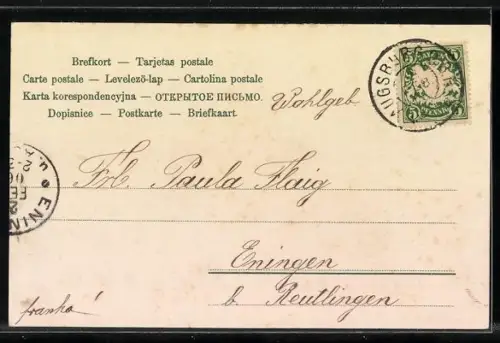 Brefkort — Tarjetas postale
Carte postale — Levelező-lap — Cartolina postale
Karta korespondencyjna — ОТКРЫТОЕ ПИСЬМО.
Dopisnice — Postkarte — Briefkaart.
Wohlgeb.
AUGSBURG
BAYERN
5 PFENNIG 5
Frl. Paula Flaig
ENIN
Eningen
b. Reutlingen
franko!